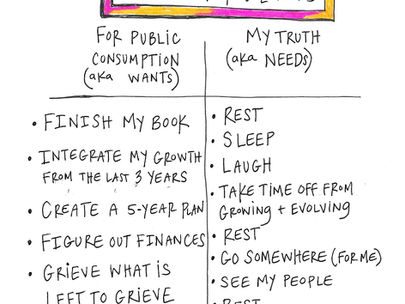 FOR PUBLIC
CONSUMPTION
(aka WANTS)
• FINISH MY BOOK
• INTEGRATE MY GROWTH
FROM THE LAST 3 YEARS
• CREATE A 5-YEAR PLAN
• FIGURE OUT FINANCES
• GRIEVE WHAT IS
LEFT TO GRIEVE
MY TRUTH
(aka NEEDS)
• REST
• SLEEP
• LAUGH
• TAKE TIME OFF FROM
GROWING + EVOLVING
• REST
• GO SOMEWHERE (FOR ME)
• SEE MY PEOPLE
• REST